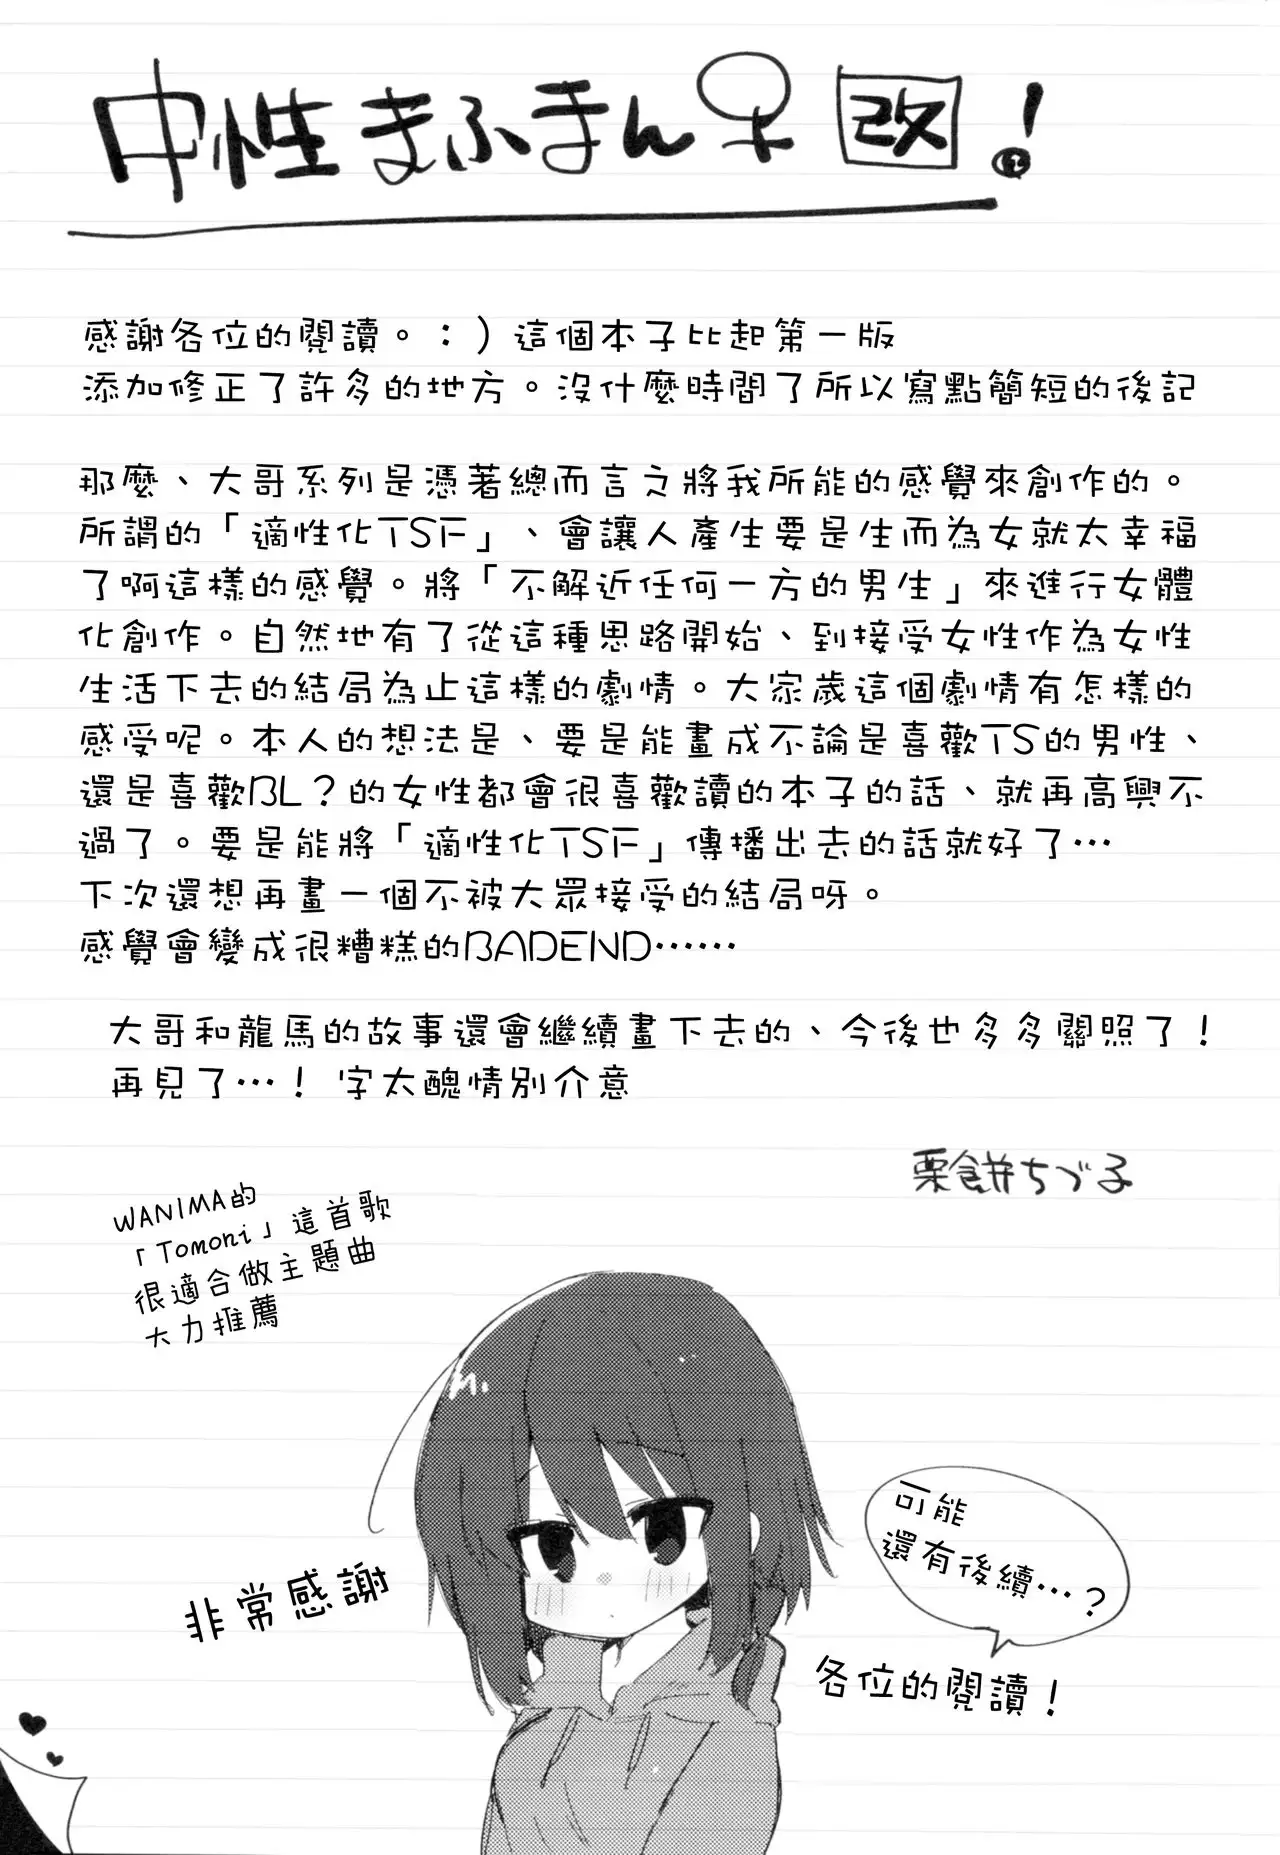 中性まふまん♀改!
感謝各位的閱讀。：）這個本子比起第一版
添加修正了許多的地方。沒什麼時間了所以寫點簡短的後記
那麼、大哥系列是憑著總而言之將我所能的感覺來創作的。
所謂的「適性化TSF」、會讓人產生要是生而為女就太幸福
了啊這樣的感覺。將「不解近任何一方的男生」來進行女體
化創作。自然地有了從這種思路開始、到接受女性作為女性
生活下去的結局為止這樣的劇情。大家歲這個劇情有怎樣的
感受呢。本人的想法是、要是能畫成不論是喜歡TS的男性、
還是喜歡BL？的女性都會很喜歡讀的本子的話、就再高興不
過了。要是能將「適性化TSF」傳播出去的話就好了…
下次還想再畫一個不被大眾接受的結局呀。
感覺會變成很糟糕的BADEND……
大哥和龍馬的故事還會繼續畫下去的、今後也多多關照了！
再見了…！ 字太醜情別介意
栗餅ちづ子
WANIMA的
「Tomoni」這首歌
很適合做主題曲
大力推薦
可能
還有後續…？
非常感謝
各位的閱讀！